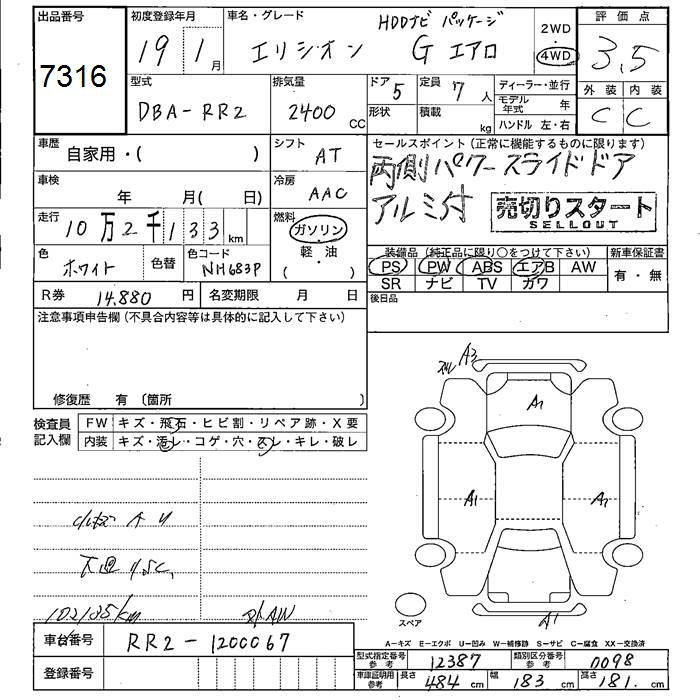 出品番号 初度登録年月 車名・グレード HDDナビ パッケージ 2WD ・ 4WD 評価点
7316 19 1月 エリシオン G エアロ 3.5
型式 排気量 ドア 5 定員 7人 ディーラー・並行 外装 内装
DBA-RR2 2400 CC 形状 積載 kg モデル年式 年 C C
ハンドル 左・右
車歴 自家用・( ) シフト AT セールスポイント(正常に機能するものに限ります)
車検 年 月( 日) 冷房 AAC 両側パワースライドドア
走行 10万2千133km 燃料 ガソリン・軽油 ( ) アルミ付 売切りスタート
SELLOUT
色 ホワイト 色替 色コード NH683P 装備品(純正品に限り○をつけて下さい) 新車保証書
PS PW ABS エアB AW 有・無
R券 14.880円 名変期限 月 日 SR ナビ TV カワ
注意事項申告欄(不具合内容等は具体的に記入して下さい) 後日品
修復歴 有(箇所 )
検査員記入欄 FW キズ・飛石・ヒビ割・リペア跡・X要
内装 キズ・汚レ・コゲ・穴・スレ・キレ・破レ
A3
A1
A1 A1
小キズ
下廻りSC
102135km AW
A1
スペア
A-キズ E-エクボ U-凹み W-補修跡 S-サビ C-腐食 XX-交換済
車台番号 RR2-1200067
型式指定番号 参考 12387 類別区分番号 参考 0098
登録番号
車庫証明用 参考 長さ 484cm 幅 183cm 高さ 181cm